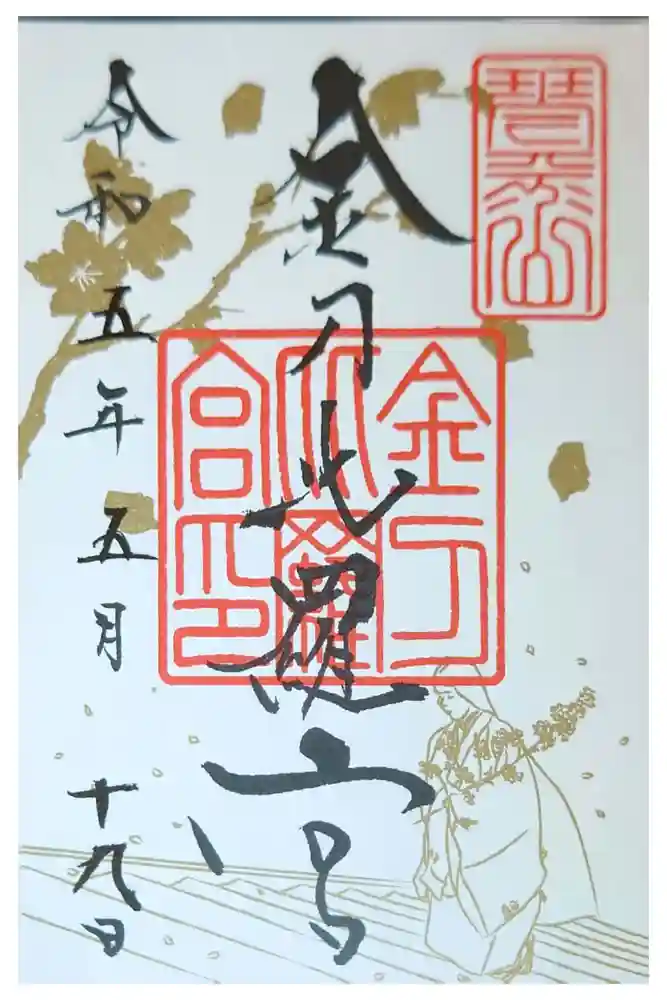 琴平山
金刀比羅宮
金刀
比羅
宮印
令和五年五月十九日